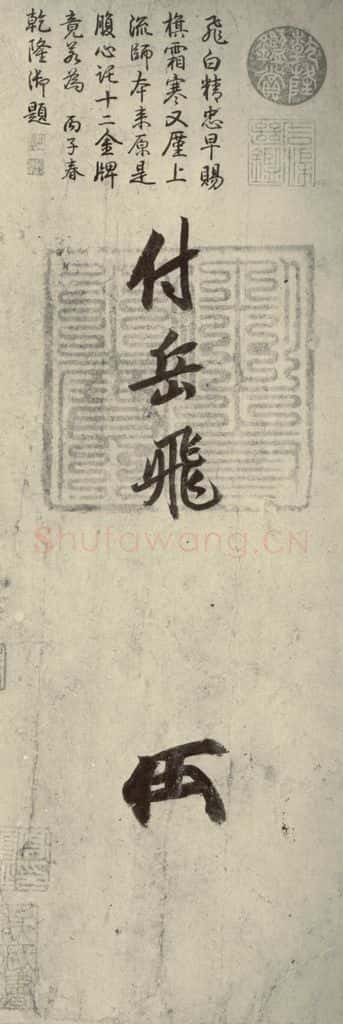 飛白精忠早賜
旗霜寒又廑上
流師本来原是
腹心託十二金牌
竟若為 丙子春
乾隆御題
乾隆鑒賞
付岳飛
Shufawang.CN